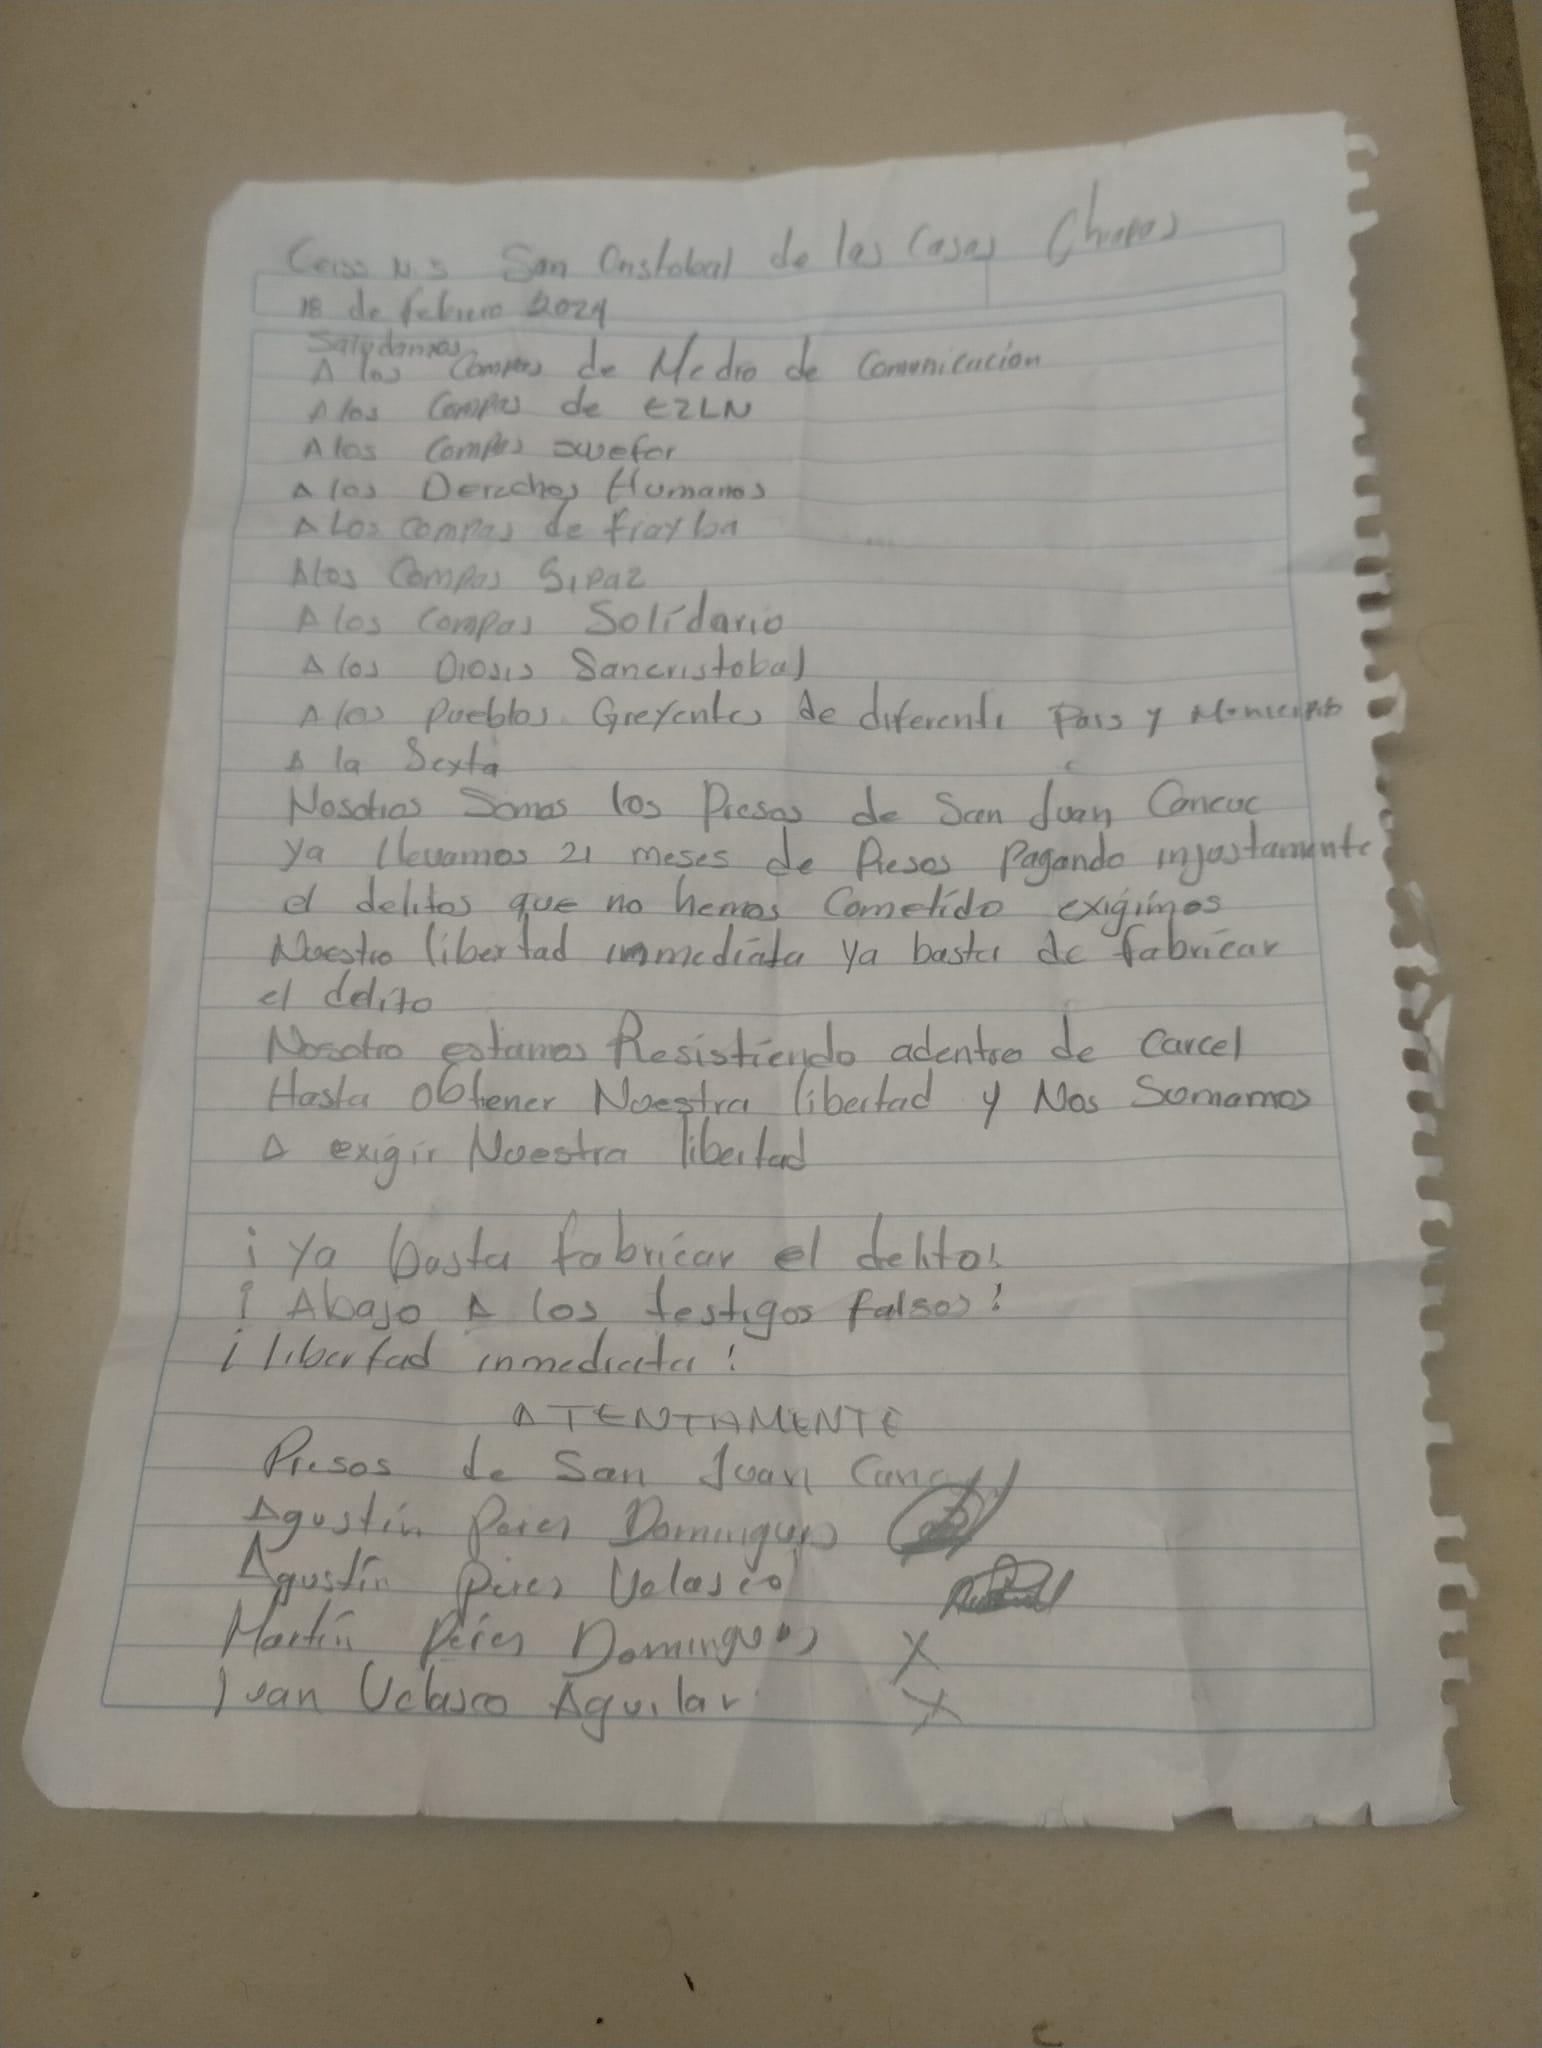 Cerss N. 5 San Cristobal de las Casas Chiapas
18 de febrero 2024
Saludamos
A los Compas de Medio de Comunicación
A los Compas de EZLN
A los Compas
A los Derechos Humanos
A Los compas de frayba
Alos Compas Sipaz
A los compas Solídario
A los Diosis Sancristobal
A los Pueblos Greyentes de diferente Pais y Municipio
A la Sexta
Nosotros Somos los Presos de San Juan Cancuc
ya llevamos 21 meses de Presos Pagando injustamente
el delitos que no hemos Cometído exigímos
Nuestro libertad inmmedíata ya basta de fabrícar
el delito
Nosotro estamos Resistíendo adentro de Carcel
Hasta obtener Nuestra libertad y Nos Sumamos
A exigir Nuestra libertad
¡ Ya basta fabrícar el delito!
¡ Abajo A los testigos falsos!
¡ libertad inmediata !
ATENTAMENTE
Presos de San Juan
Agustín Peres Domingues
Agustín Peres Velasco
Martín Péres Domingues X
Juan Velasco Aguilar X